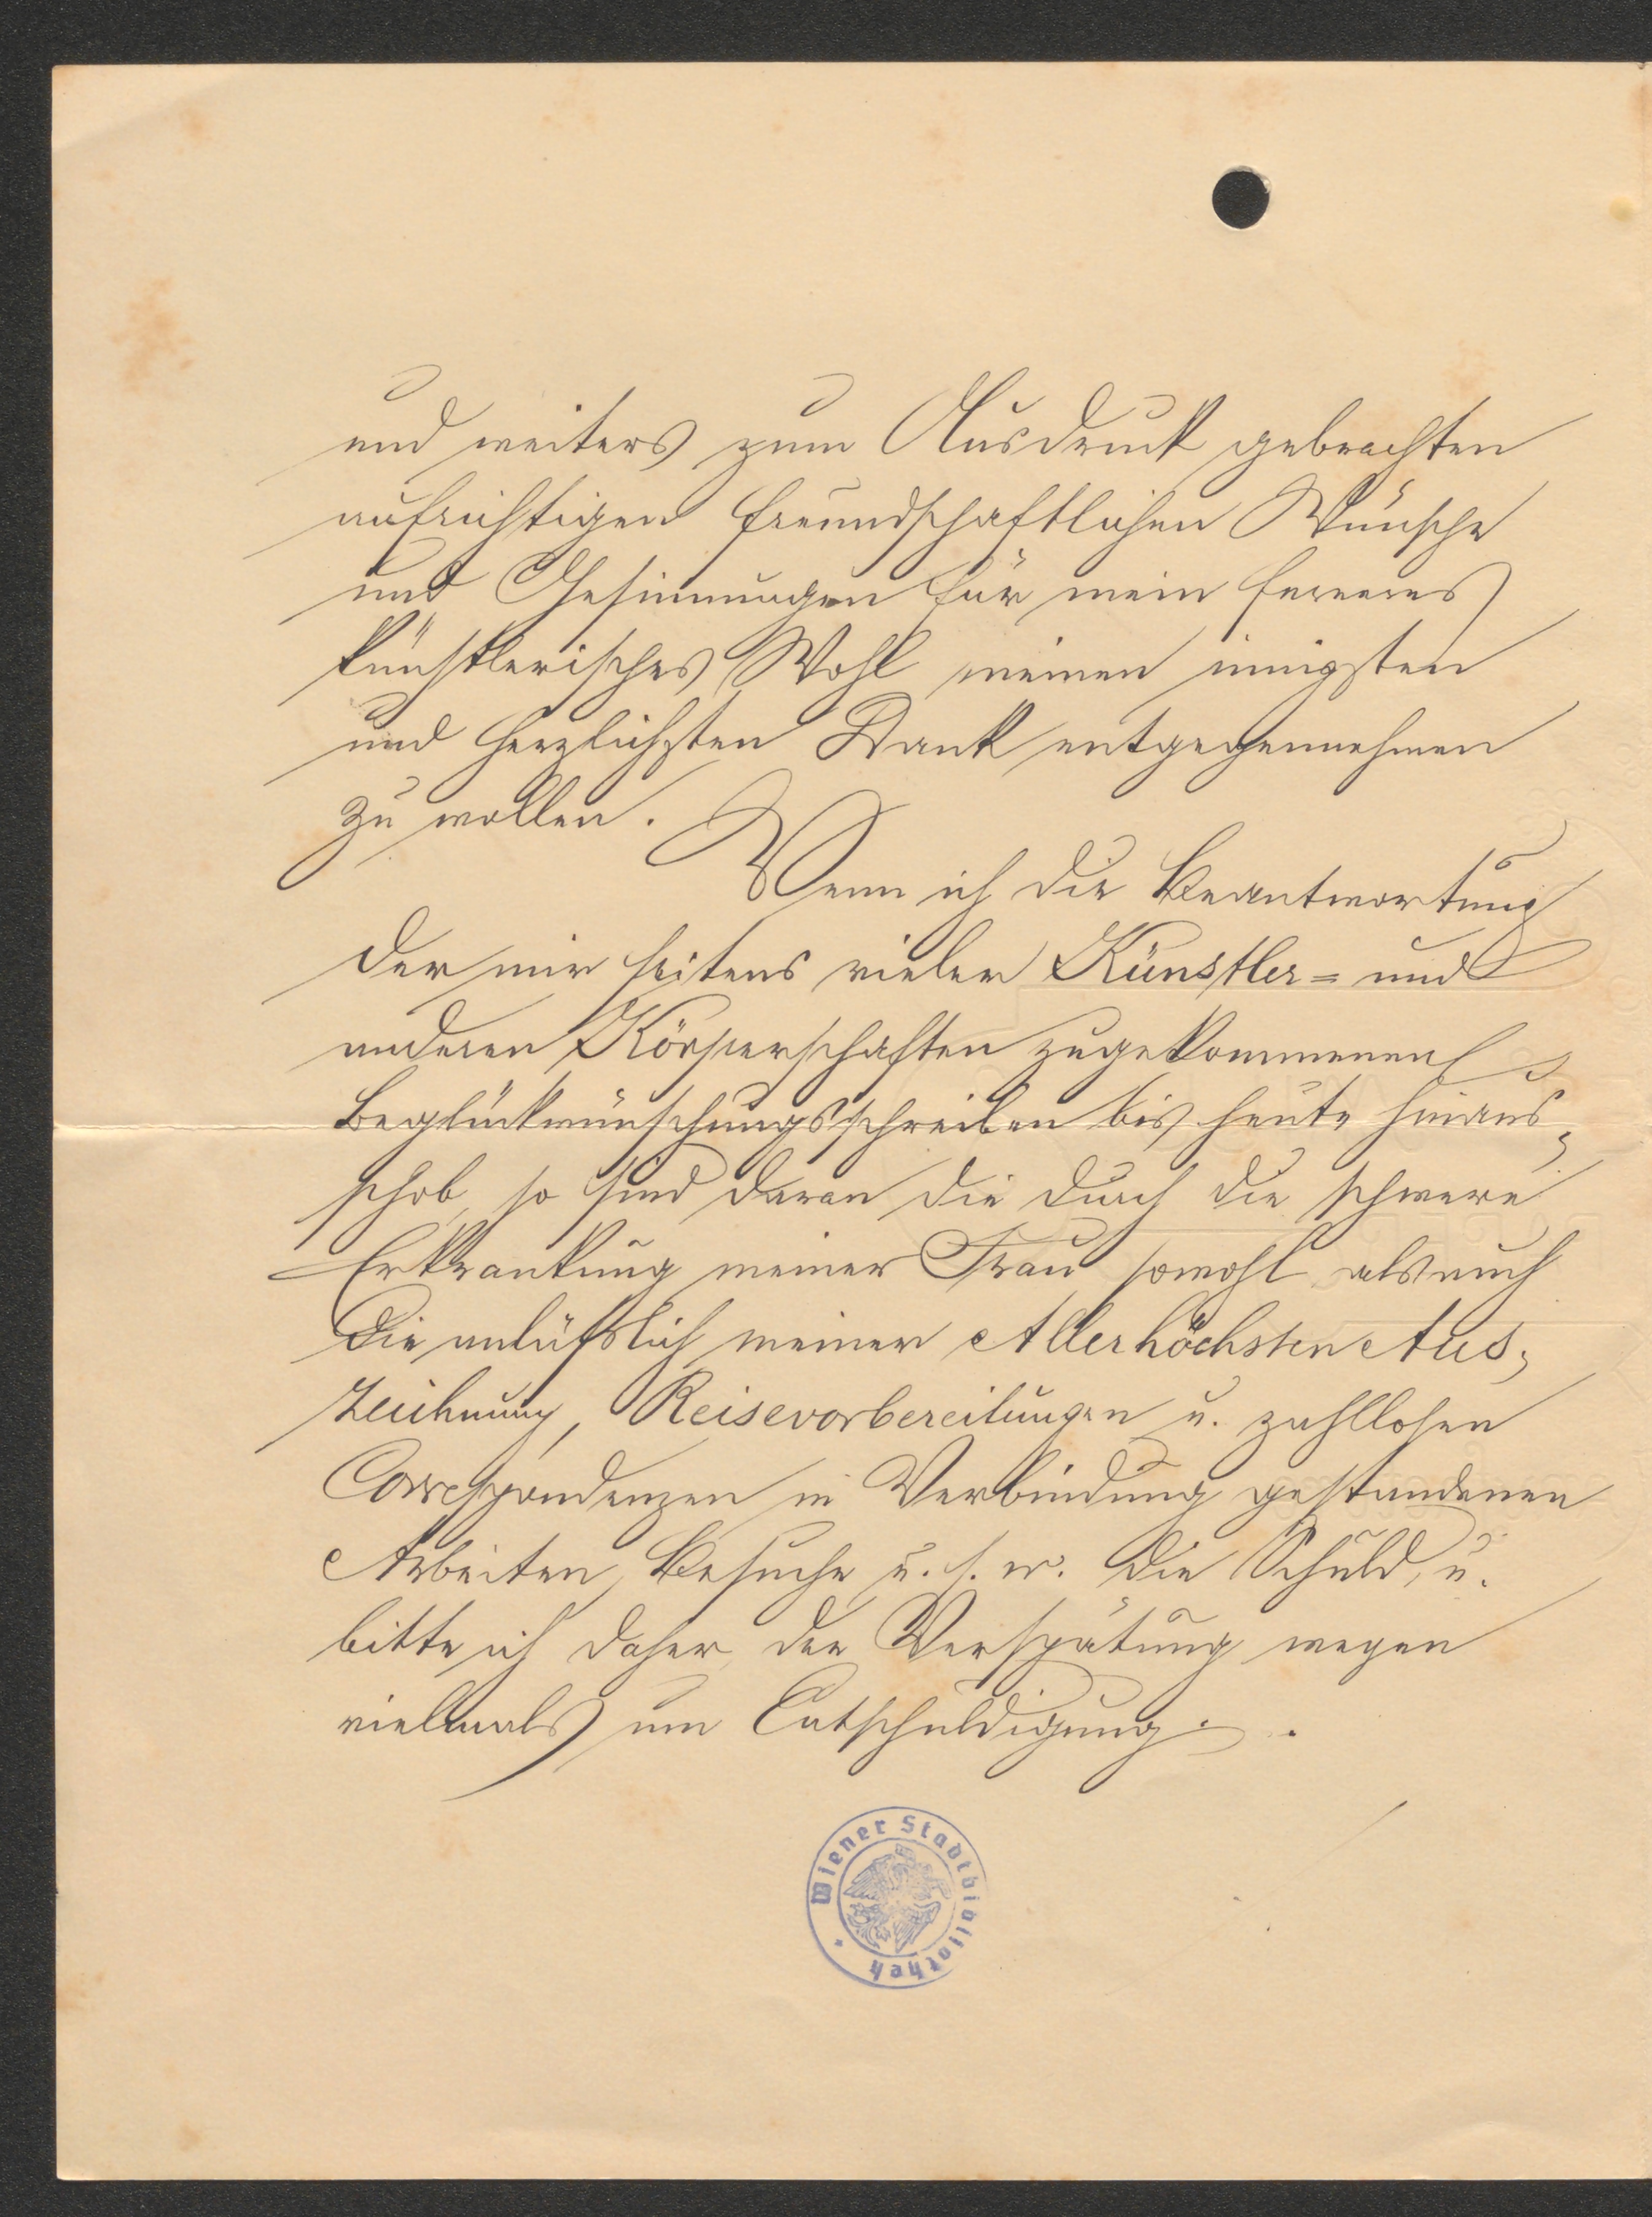 und weiters zum Ausdruck gebrachten
aufrichtigen freundschaftlichen Wünsche
und Gesinnungen für mein ferneres
künstlerisches Wohl meinen innigsten
und herzlichsten Dank entgegennehmen
zu wollen.
Wenn ich die Beantwortung
der mir seitens vieler Künstler= und
anderen Körperschaften zugekommenen
Beglückwünschungsschreiben bis heute hinaus=
schob, so sind daran die durch die schwere
Erkrankung meiner Frau sowohl als auch
die anläßlich meiner Allerhöchsten Aus=
zeichnung, Reisevorbereitungen u. zahllosen
Correspondenzen in Verbindung gestandenen
Arbeiten, Besuche u. s. w. die Schuld, u.
bitte ich daher der Verspätung wegen
vielmals um Entschuldigung.
Wiener Stadtbibliothek